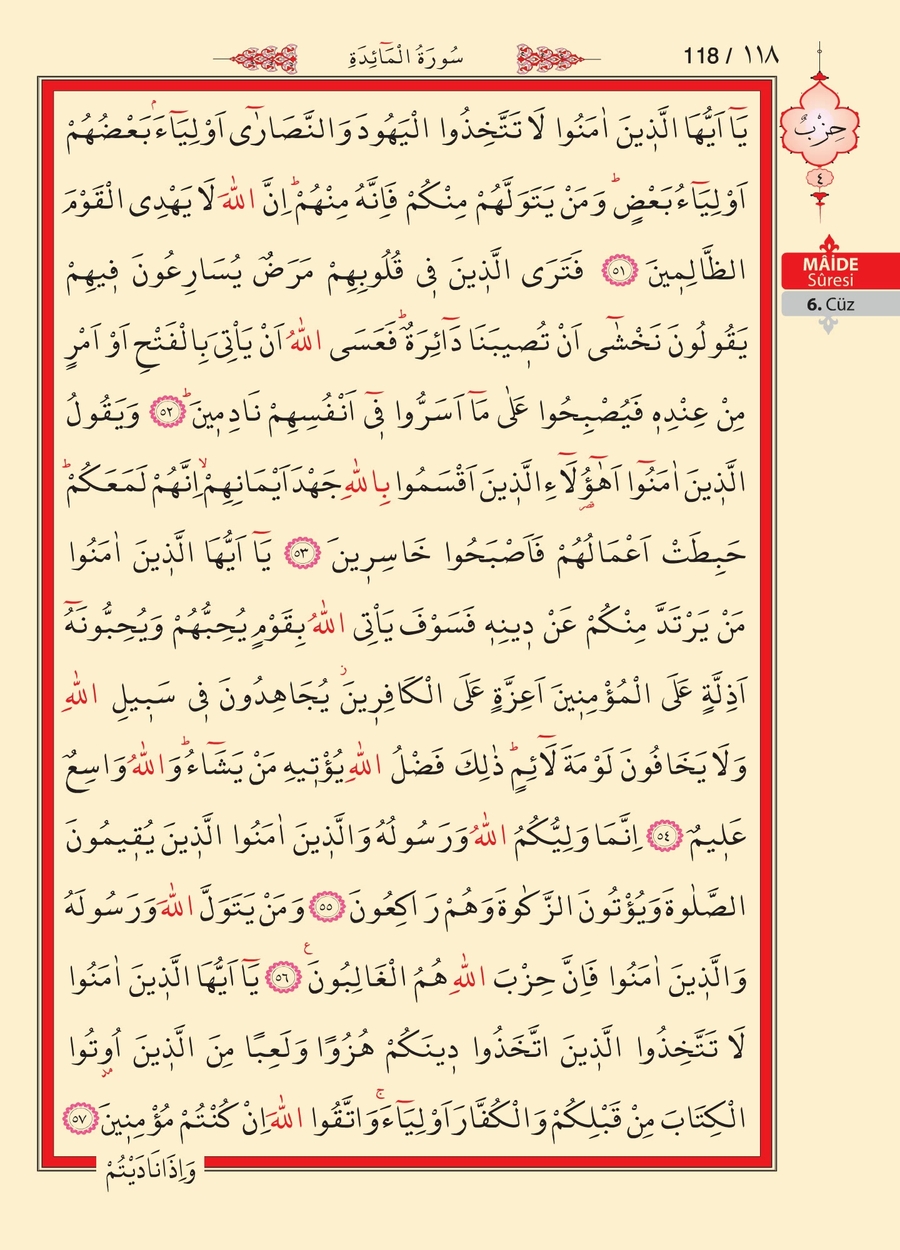 سُورَةُ الْمَٓائِدَةِ
118 / ١١٨
حِزْبٌ
٤
MÂİDE
Sûresi
6. Cüz
يَٓا اَيُّهَا الَّذ۪ينَ اٰمَنُوا لَا تَتَّخِذُوا الْيَهُودَ وَالنَّصَارٰٓى اَوْلِيَٓاءَۢ بَعْضُهُمْ
اَوْلِيَٓاءُ بَعْضٍۜ وَمَنْ يَتَوَلَّهُمْ مِنْكُمْ فَاِنَّهُ مِنْهُمْۜ اِنَّ اللّٰهَ لَا يَهْدِى الْقَوْمَ
الظَّالِم۪ينَ ﴿٥١﴾ فَتَرَى الَّذ۪ينَ ف۪ى قُلُوبِهِمْ مَرَضٌ يُسَارِعُونَ ف۪يهِمْ
يَقُولُونَ نَخْشٰٓى اَنْ تُص۪يبَنَا دَٓائِرَةٌۜ فَعَسَى اللّٰهُ اَنْ يَأْتِىَ بِالْفَتْحِ اَوْ اَمْرٍ
مِنْ عِنْدِه۪ فَيُصْبِحُوا عَلٰى مَٓا اَسَرُّوا ف۪ٓى اَنْفُسِهِمْ نَادِم۪ينَۜ ﴿٥٢﴾ وَيَقُولُ
الَّذ۪ينَ اٰمَنُٓوا اَهٰٓؤُ۬لَٓاءِ الَّذ۪ينَ اَقْسَمُوا بِاللّٰهِ جَهْدَ اَيْمَانِهِمْۙ اِنَّهُمْ لَمَعَكُمْۜ
حَبِطَتْ اَعْمَالُهُمْ فَاَصْبَحُوا خَاسِر۪ينَ ﴿٥٣﴾ يَٓا اَيُّهَا الَّذ۪ينَ اٰمَنُوا
مَنْ يَرْتَدَّ مِنْكُمْ عَنْ د۪ينِه۪ فَسَوْفَ يَأْتِى اللّٰهُ بِقَوْمٍ يُحِبُّهُمْ وَيُحِبُّونَهُٓ
اَذِلَّةٍ عَلَى الْمُؤْمِن۪ينَ اَعِزَّةٍ عَلَى الْكَافِر۪ينَۘ يُجَاهِدُونَ ف۪ى سَب۪يلِ اللّٰهِ
وَلَا يَخَافُونَ لَوْمَةَ لَٓائِمٍۜ ذٰلِكَ فَضْلُ اللّٰهِ يُؤْت۪يهِ مَنْ يَشَٓاءُۜ وَاللّٰهُ وَاسِعٌ
عَل۪يمٌ ﴿٥٤﴾ اِنَّمَا وَلِيُّكُمُ اللّٰهُ وَرَسُولُهُ وَالَّذ۪ينَ اٰمَنُوا الَّذ۪ينَ يُق۪يمُونَ
الصَّلٰوةَ وَيُؤْتُونَ الزَّكٰوةَ وَهُمْ رَاكِعُونَ ﴿٥٥﴾ وَمَنْ يَتَوَلَّ اللّٰهَ وَرَسُولَهُ
وَالَّذ۪ينَ اٰمَنُوا فَاِنَّ حِزْبَ اللّٰهِ هُمُ الْغَالِبُونَ۟ ﴿٥٦﴾ يَٓا اَيُّهَا الَّذ۪ينَ اٰمَنُوا
لَا تَتَّخِذُوا الَّذ۪ينَ اتَّخَذُوا د۪ينَكُمْ هُزُوًا وَلَعِبًا مِنَ الَّذ۪ينَ اُو۫تُوا
الْكِتَابَ مِنْ قَبْلِكُمْ وَالْكُفَّارَ اَوْلِيَٓاءَۚ وَاتَّقُوا اللّٰهَ اِنْ كُنْتُمْ مُؤْمِن۪ينَ ﴿٥٧﴾
وَاِذَا نَادَيْتُمْ